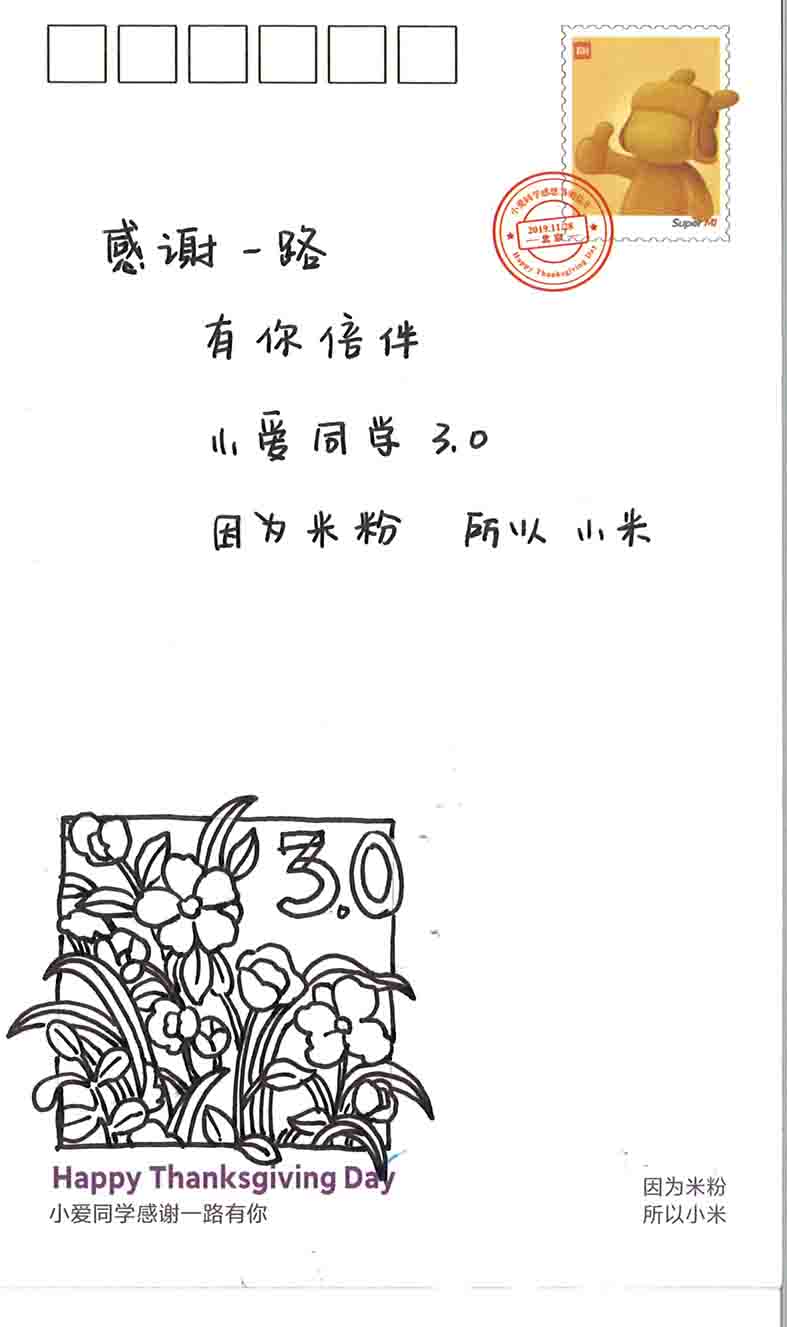 小爱同学感恩节明信片
2019.11.28
北京
Happy Thanksgiving Day
Super MI
感谢一路
有你倍伴
小爱同学 3.0
因为米粉 所以小米
3.0
Happy Thanksgiving Day
小爱同学感谢一路有你
因为米粉
所以小米